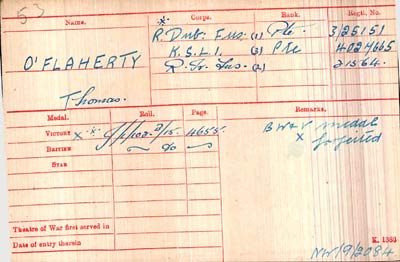 53
Name. Corps. Rank. Regtl. No.
R. Dub. Fus. (1) Pte 325151
O'FLAHERTY K.S.L.I. (3) Pte 4027665
R. Ir. Fus. (2) 21564.
Thomas.
Medal. Roll. Page. Remarks.
VICTORY X 4655 BW&V medal
BRITISH do X forfeited
STAR
Theatre of War first served in
Date of entry therein
K. 1380
NW/9/2084